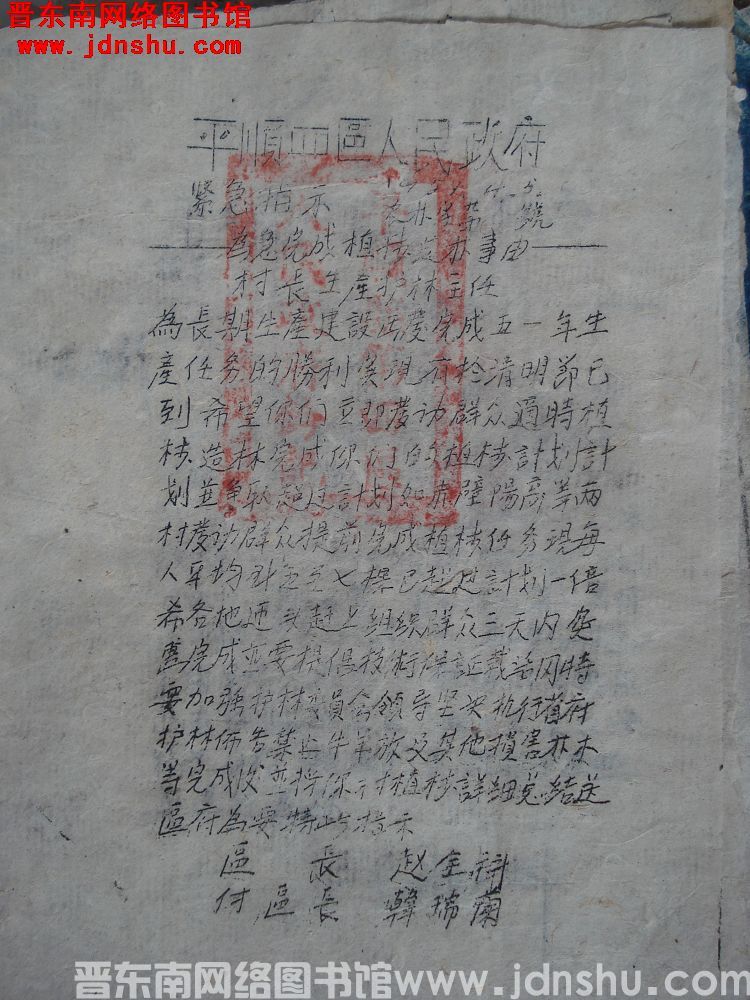 晋东南网络图书馆
www.jdnshu.com
平順四區人民政府
緊急指示
為急完成植树造林事由
村長生產护林主任
為長期生產建設庆應完成五一年生
產任务的勝利实現有於清明節已
到希望你们立即发动群众適時植
树造林完成你们的植树計划計
划並争取超过計划如赤壁陽高等两
村发动群众提前完成植树任务現每
人平均計五至七棵已超过計划一倍
希各地迎头赶上組織群众三天内突
击完成並要提倡技術保証栽活同時
要加強护林委員会領导坚决执行省府
护林佈告禁止牛羊放及其他損害林木
等完成後並将你村植树詳細总結送
區府為要特此指示
區長 赵全
付區長 韓瑞蘭
晋东南网络图书馆www.jdnshu.com